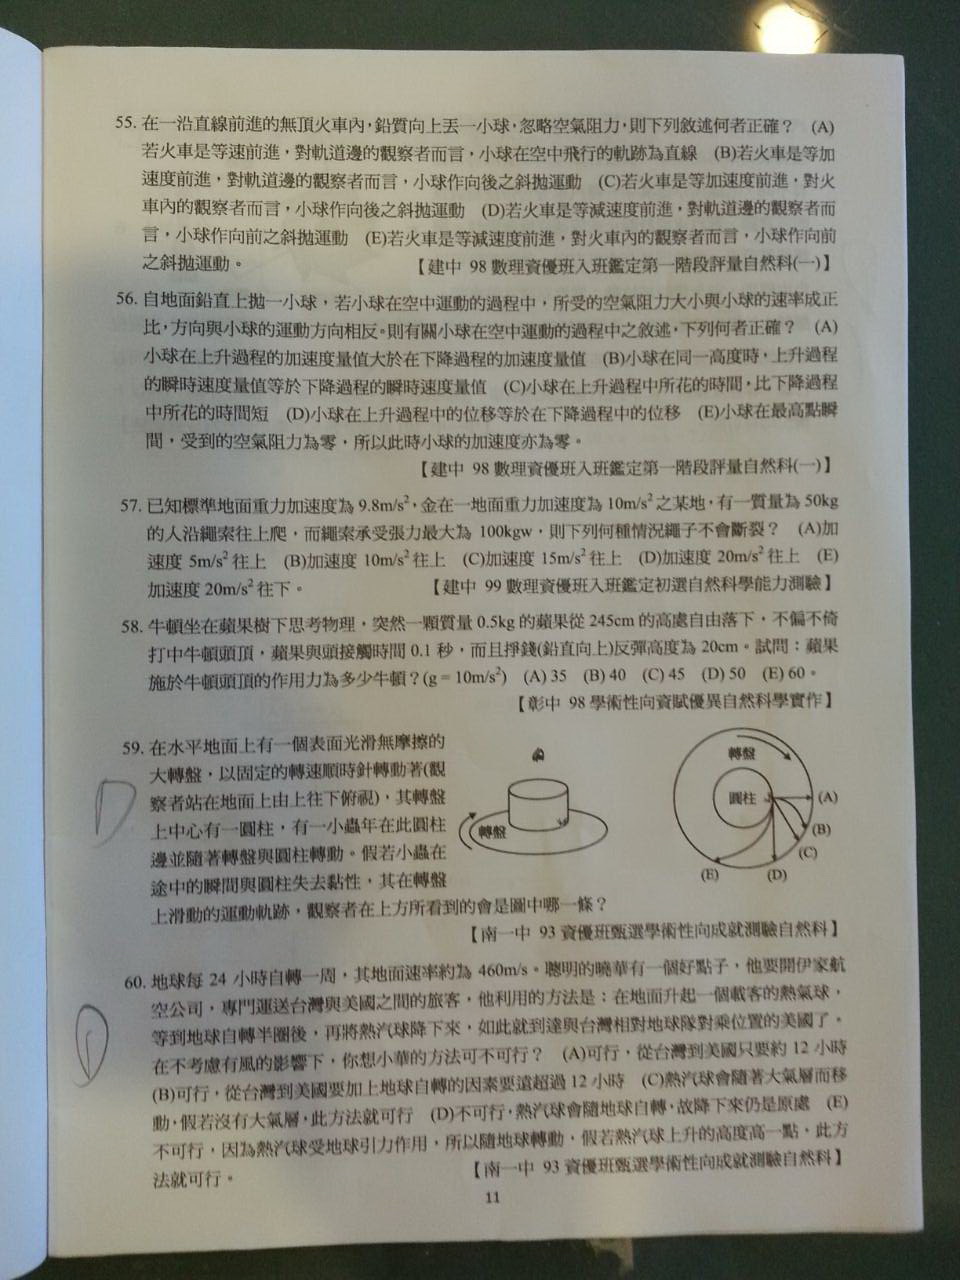 55. 在一沿直線前進的無頂火車內,鉛質向上丟一小球,忽略空氣阻力,則下列敘述何者正確? (A)
若火車是等速前進,對軌道邊的觀察者而言,小球在空中飛行的軌跡為直線 (B)若火車是等加
速度前進,對軌道邊的觀察者而言,小球作向後之斜拋運動 (C)若火車是等加速度前進,對火
車內的觀察者而言,小球作向後之斜拋運動 (D)若火車是等減速度前進,對軌道邊的觀察者而
言,小球作向前之斜拋運動 (E)若火車是等減速度前進,對火車內的觀察者而言,小球作向前
之斜拋運動。 【建中 98 數理資優班入班鑑定第一階段評量自然科(一)】
56. 自地面鉛直上拋一小球,若小球在空中運動的過程中,所受的空氣阻力大小與小球的速率成正
比,方向與小球的運動方向相反。則有關小球在空中運動的過程中之敘述,下列何者正確? (A)
小球在上升過程的加速度量值大於在下降過程的加速度量值 (B)小球在同一高度時,上升過程
的瞬時速度量值等於下降過程的瞬時速度量值 (C)小球在上升過程中所花的時間,比下降過程
中所花的時間短 (D)小球在上升過程中的位移等於在下降過程中的位移 (E)小球在最高點瞬
間,受到的空氣阻力為零,所以此時小球的加速度亦為零。
【建中 98 數理資優班入班鑑定第一階段評量自然科(一)】
57. 已知標準地面重力加速度為 9.8m/s²,金在一地面重力加速度為 10m/s² 之某地,有一質量為 50kg
的人沿繩索往上爬,而繩索承受張力最大為 100kgw,則下列何種情況繩子不會斷裂? (A)加
速度 5m/s² 往上 (B)加速度 10m/s² 往上 (C)加速度 15m/s² 往上 (D)加速度 20m/s² 往上 (E)
加速度 20m/s² 往下。 【建中 99 數理資優班入班鑑定初選自然科學能力測驗】
58. 牛頓坐在蘋果樹下思考物理,突然一顆質量 0.5kg 的蘋果從 245cm 的高處自由落下,不偏不倚
打中牛頓頭頂,蘋果與頭接觸時間 0.1 秒,而且掙錢(鉛直向上)反彈高度為 20cm。試問:蘋果
施於牛頓頭頂的作用力為多少牛頓?(g = 10m/s²) (A) 35 (B) 40 (C) 45 (D) 50 (E) 60。
【彰中 98 學術性向資賦優異自然科學實作】
59. 在水平地面上有一個表面光滑無摩擦的
大轉盤,以固定的轉速順時針轉動著(觀
察者站在地面上由上往下俯視),其轉盤
上中心有一圓柱,有一小蟲年在此圓柱
邊並隨著轉盤與圓柱轉動。假若小蟲在
途中的瞬間與圓柱失去黏性,其在轉盤
上滑動的運動軌跡,觀察者在上方所看到的會是圖中哪一條?
轉盤
轉盤
圓柱
(A)
(B)
(C)
(D)
(E)
D
【南一中 93 資優班甄選學術性向成就測驗自然科】
60. 地球每 24 小時自轉一周,其地面速率約為 460m/s。聰明的曉華有一個好點子,他要開伊家航
空公司,專門運送台灣與美國之間的旅客,他利用的方法是:在地面升起一個載客的熱氣球,
等到地球自轉半圈後,再將熱汽球降下來,如此就到達與台灣相對地球隊對乘位置的美國了。
在不考慮有風的影響下,你想小華的方法可不可行? (A)可行,從台灣到美國只要約 12 小時
(B)可行,從台灣到美國要加上地球自轉的因素要遠超過 12 小時 (C)熱汽球會隨著大氣層而移
動,假若沒有大氣層,此方法就可行 (D)不可行,熱汽球會隨地球自轉,故降下來仍是原處 (E)
不可行,因為熱汽球受地球引力作用,所以隨地球轉動,假若熱汽球上升的高度高一點,此方
法就可行。 【南一中 93 資優班甄選學術性向成就測驗自然科】
11